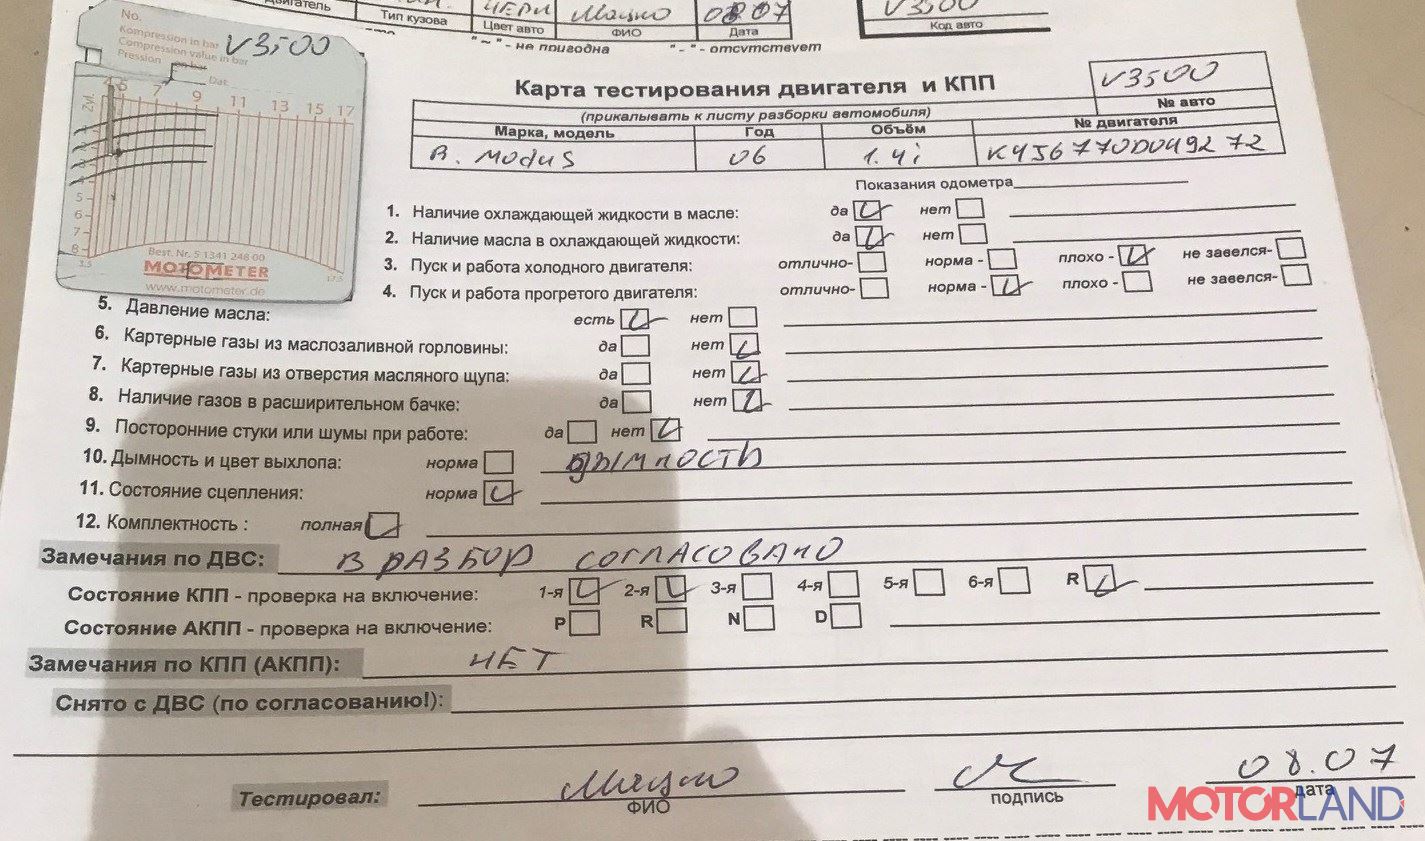 двигатель Тип кузова ЧЕРН Мацко 08.07 V3500
Цвет авто ФИО Дата Код авто
"~" - не пригодна "-" - отсутствует
No.
Kompression in bar
Compression value in bar
Pression en bar
V3500
Dat.
Zyl. 5 7 9 11 13 15 17
5
6
7
8
3.5 17.5
Best. Nr. 5 1341 248 00
MOTOMETER
www.motometer.de
Карта тестирования двигателя и КПП
V3500
№ авто
(прикалывать к листу разборки автомобиля)
Марка, модель Год Объём № двигателя
R. Modus 06 1.4i K4J6770D049272
Показания одометра
1. Наличие охлаждающей жидкости в масле: да нет
2. Наличие масла в охлаждающей жидкости: да нет
3. Пуск и работа холодного двигателя: отлично- норма - плохо - не завелся-
4. Пуск и работа прогретого двигателя: отлично- норма - плохо - не завелся-
5. Давление масла: есть нет
6. Картерные газы из маслозаливной горловины: да нет
7. Картерные газы из отверстия масляного щупа: да нет
8. Наличие газов в расширительном бачке: да нет
9. Посторонние стуки или шумы при работе: да нет
10. Дымность и цвет выхлопа: норма дымность
11. Состояние сцепления: норма
12. Комплектность : полная
Замечания по ДВС: В РАЗБОР СОГЛАСОВАНО
Состояние КПП - проверка на включение: 1-я 2-я 3-я 4-я 5-я 6-я R
Состояние АКПП - проверка на включение: P R N D
Замечания по КПП (АКПП): НЕТ
Снято с ДВС (по согласованию!):
Тестировал: Мацко 08.07
ФИО подпись дата
MOTORLAND